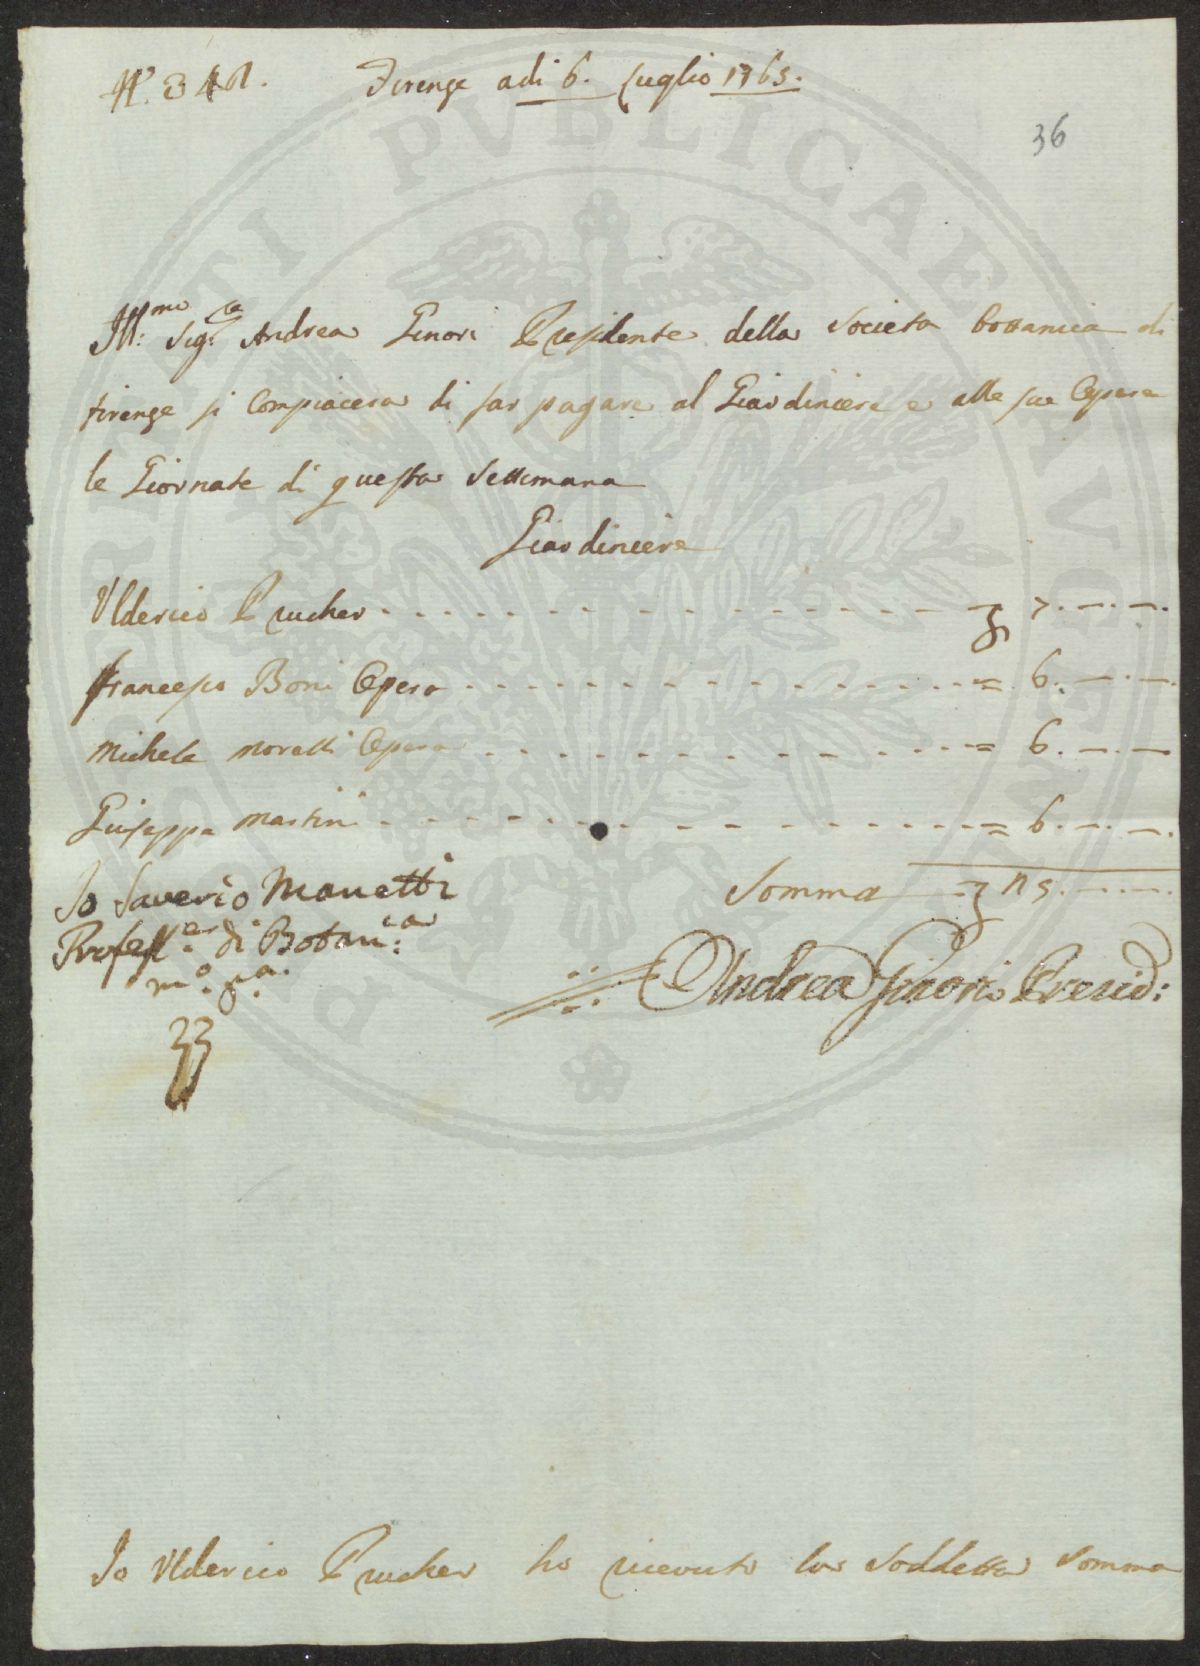 N.° 341. Firenze adi 6. Luglio 1765.
36
Ill:mo Sig.re Andrea Ginori Presidente della Società Bottanica di
firenze si Compiacera di far pagare al Giardiniere e alle sue Opere
le Giornate di questa Settimana
Giardiniere
Ulderico Prucher - - - - - - - - - - - - - 7.—.—.
francesco Boni Opera - - - - - - - - - - - = 6.—.—.
Michele Morelli Opera - - - - - - - - - - = 6.—.—
Giuseppe Martini - - - - - - - - - - - - = 6.—.—.
Somma 25.—.—.
Io Saverio Manetti
Profess.re di Botani:ca
m.o p.a.
Andrea Ginori Presid:
Io Ulderico Prucher ho riceuuto la Soddetta Somma
PVBLICAE